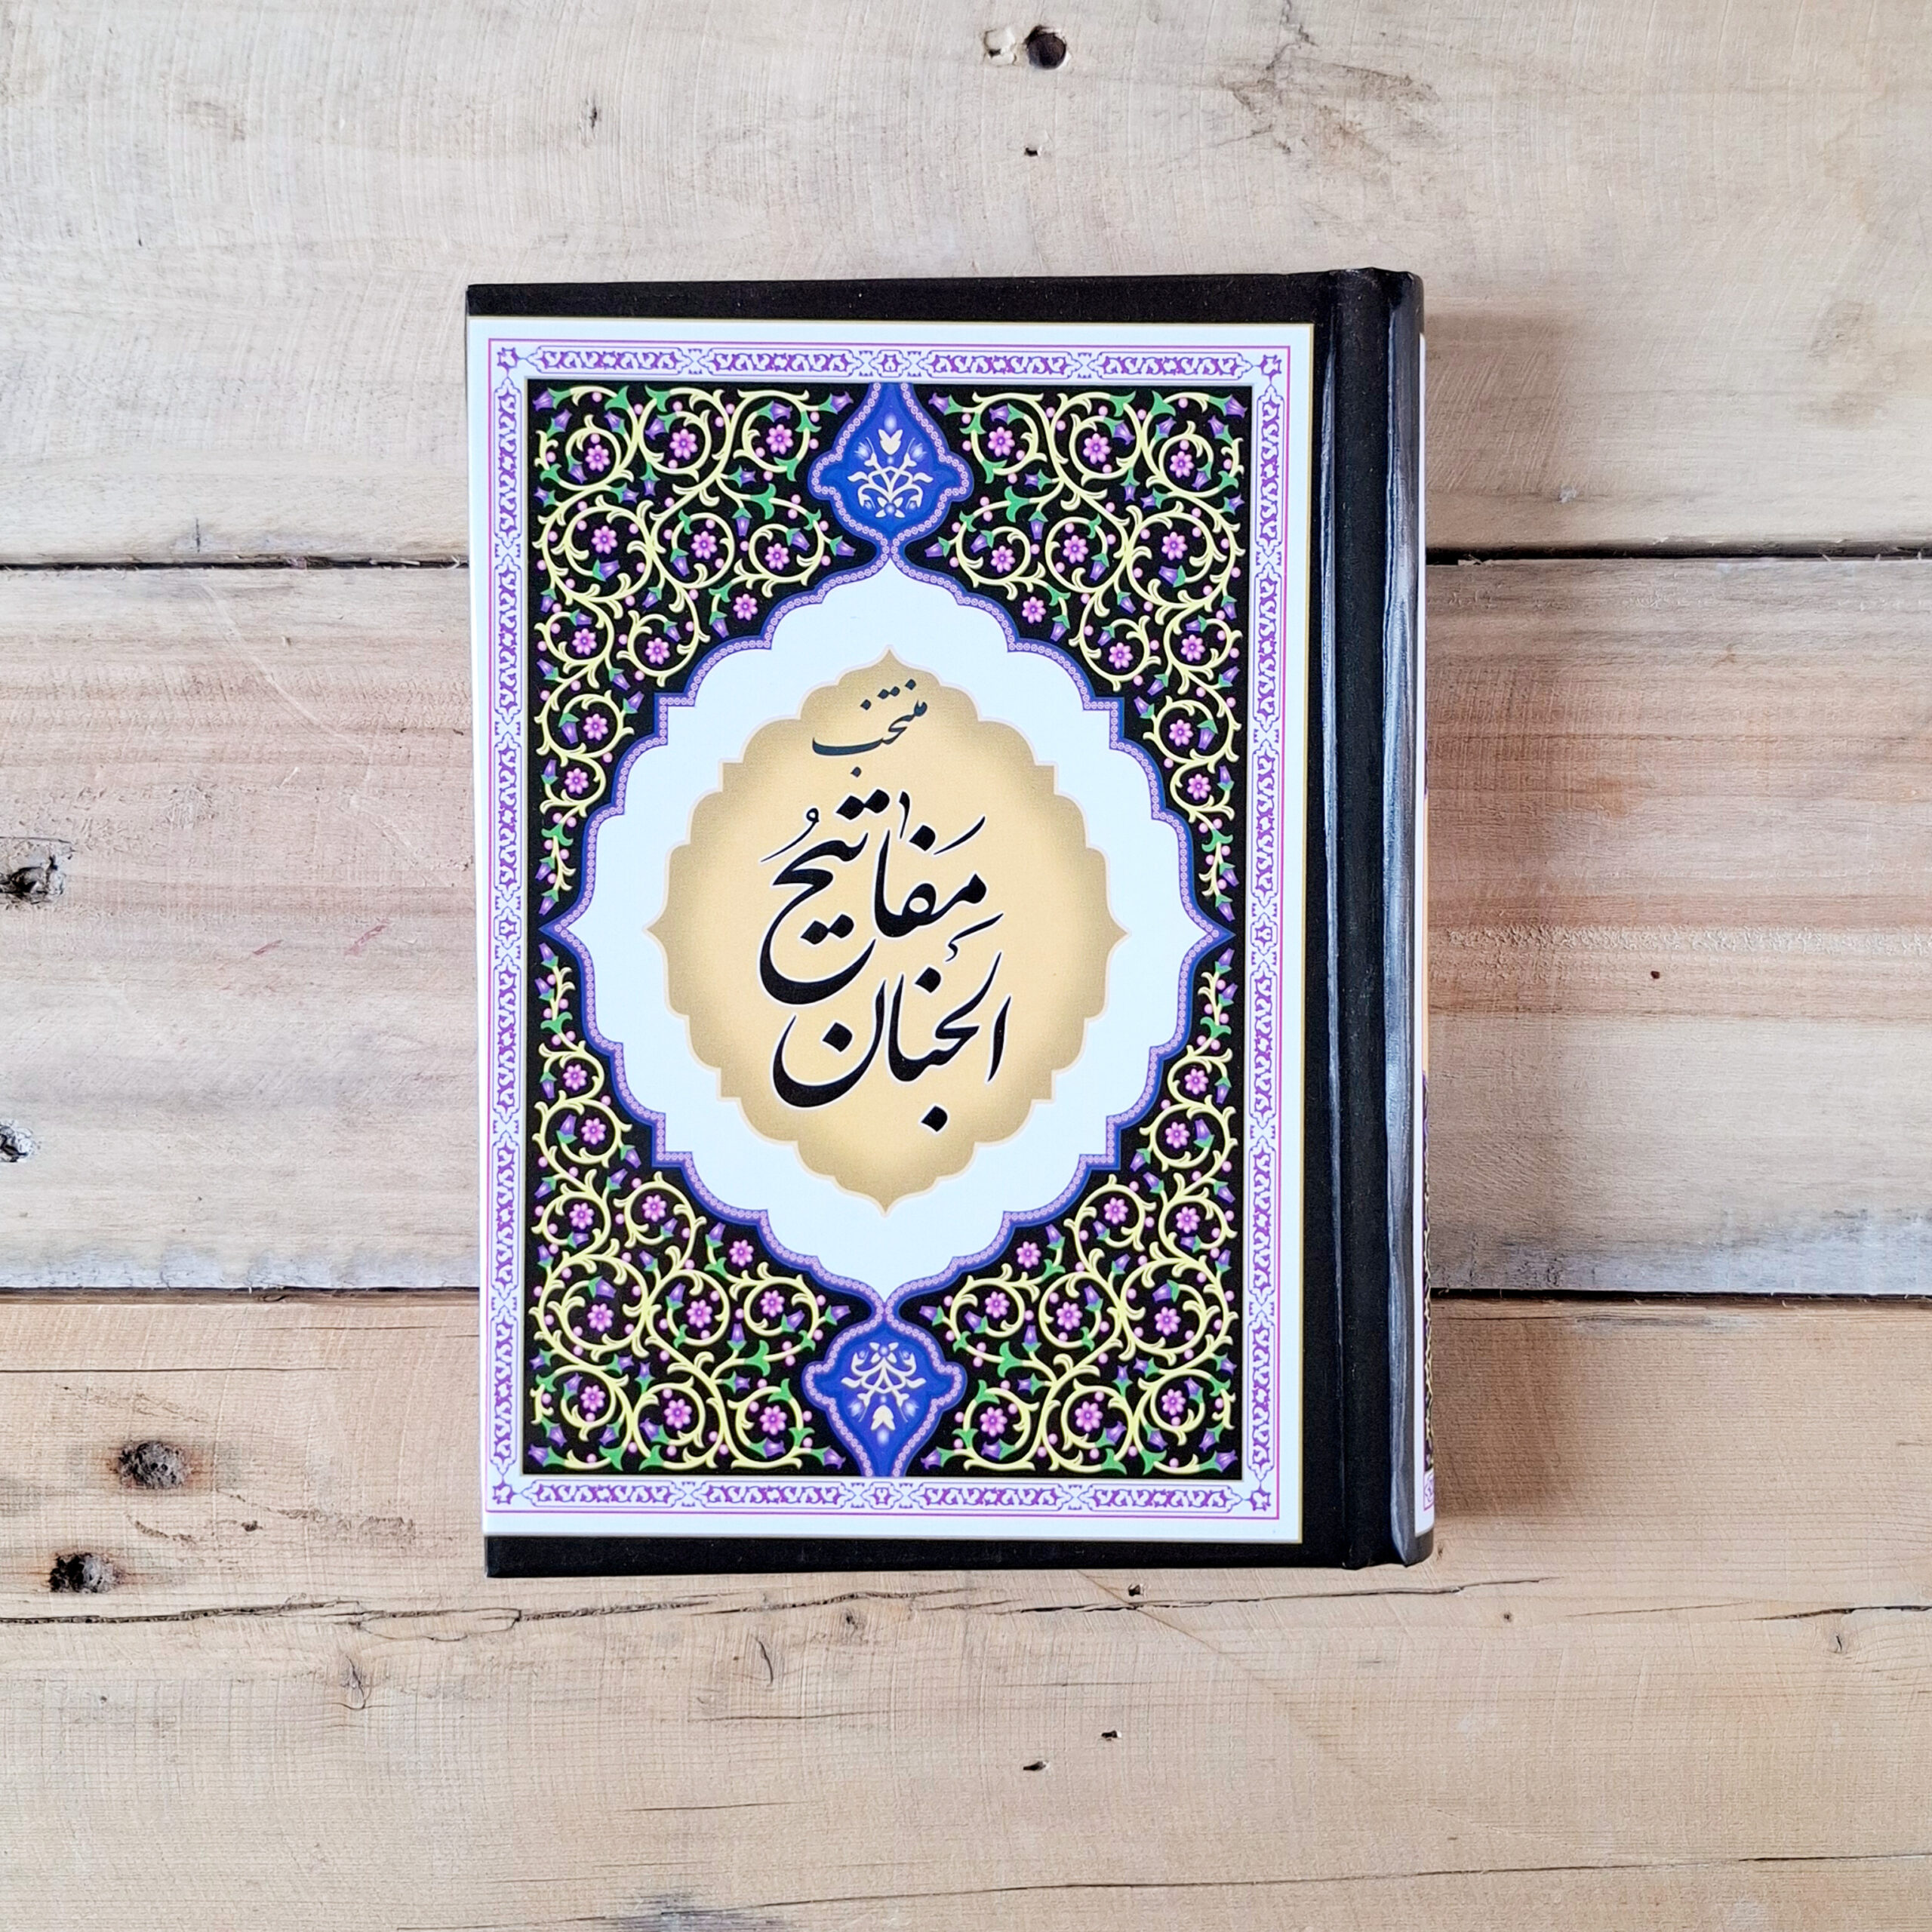 منتخب
مَفاتیحُ
الجِنان